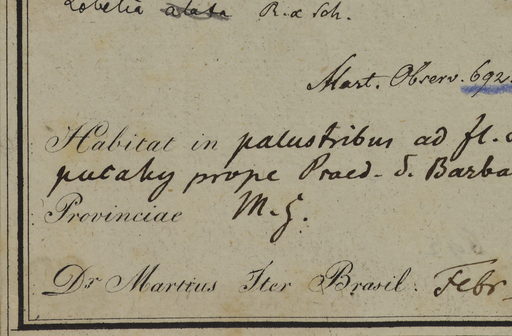 Lobelia alata R. & Sch.
Mart. Observ. 692.
Habitat in palustribus ad fl.
putahy prope Praed. S. Barba
Provinciae M. G.
Dr Martius Iter Brasil. Febr